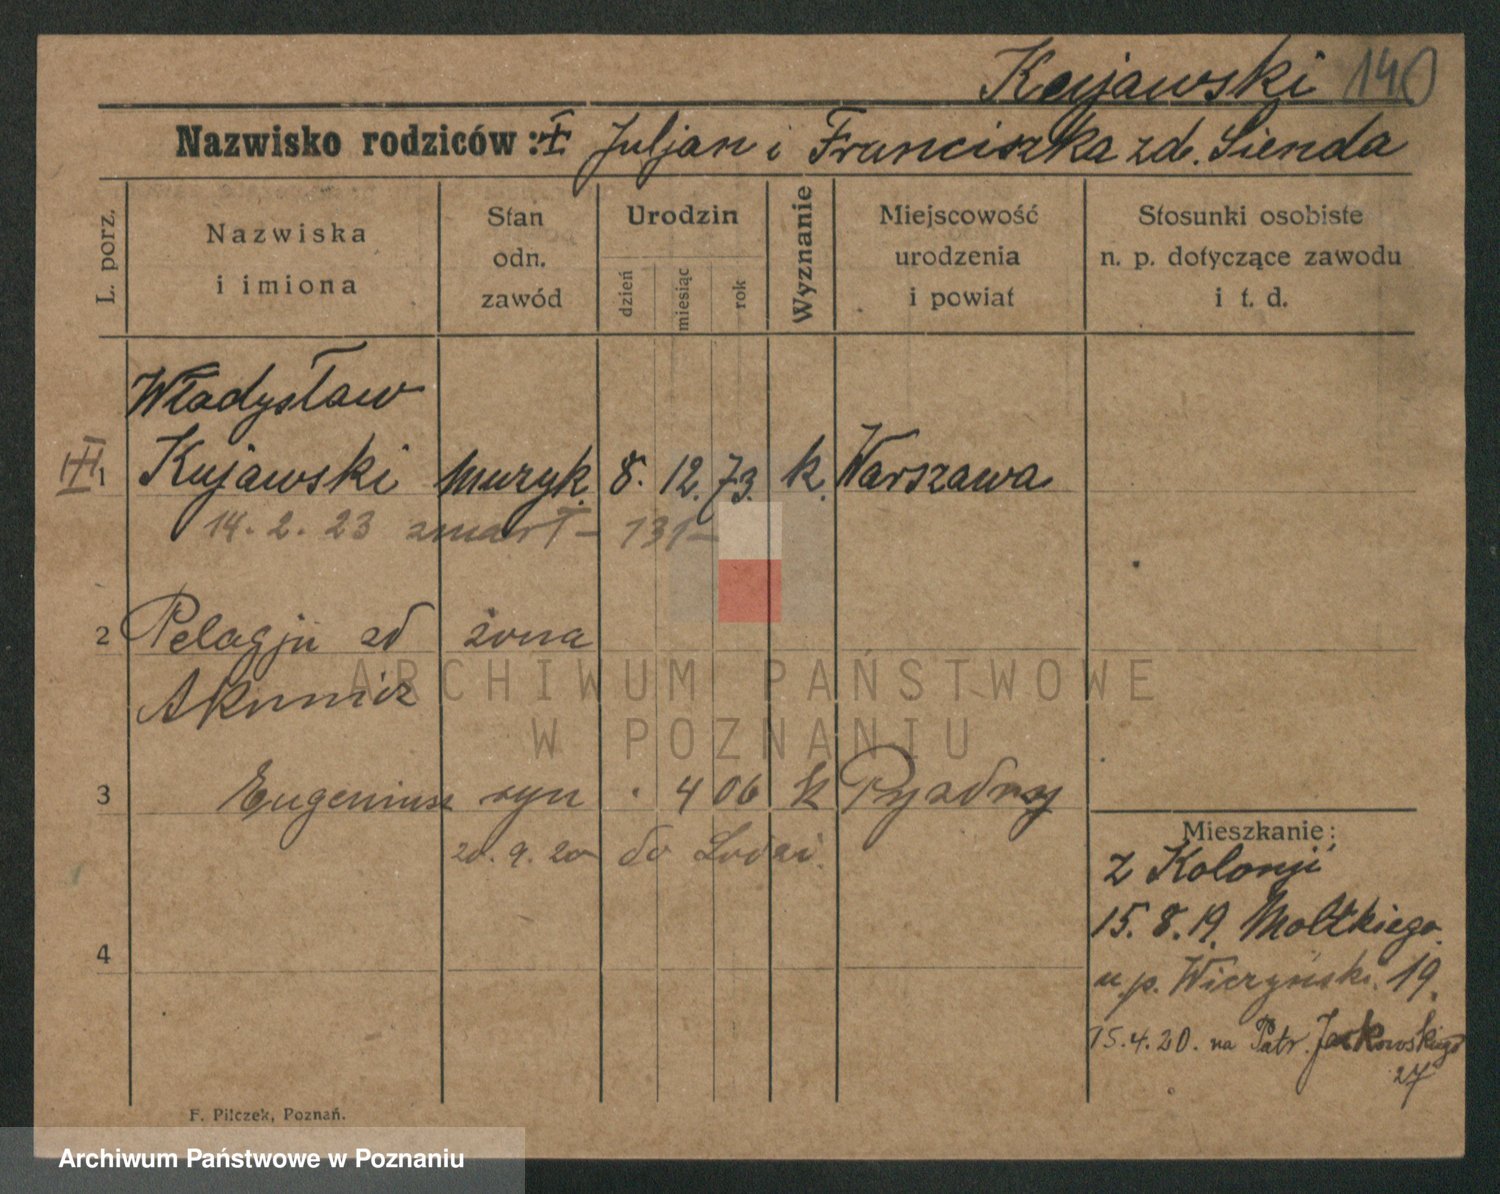 Kujawski 140
Nazwisko rodziców: Juljan i Franciszka zd. Sienda
L. porz.
Nazwiska
i imiona
Stan
odn.
zawód
Urodzin
dzień
miesiąc
rok
Wyznanie
Miejscowość
urodzenia
i powiat
Stosunki osobiste
n. p. dotyczące zawodu
i t. d.
Władysław
1 Kujawski muzyk. 8. 12. 73. k. Warszawa
14. 2. 23 zmarł - 131-
2 Pelagju zd żona
3 Eugeniusz syn 4 06 k Pyzdry
20. 9. 20 do Łodzi.
4
Mieszkanie:
z Kolonji
15. 8. 19. Moltkiego
u p. Wierzyński. 19.
15. 4. 20. na Patr. Jackowskiego
27
F. Pilczek, Poznań.
ARCHIWUM PAŃSTWOWE
W POZNANIU
Archiwum Państwowe w Poznaniu